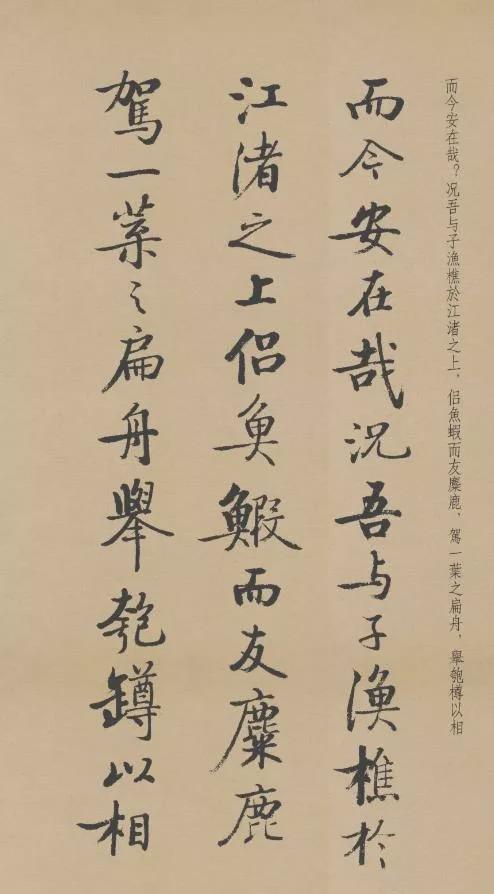 而今安在哉？况吾与子漁樵於江渚之上，侣魚蝦而友麋鹿，駕一葉之扁舟，舉匏樽以相
而今安在哉況吾与子渔樵於
江渚之上侣魚鰕而友麋鹿
駕一葉之扁舟舉匏罇以相